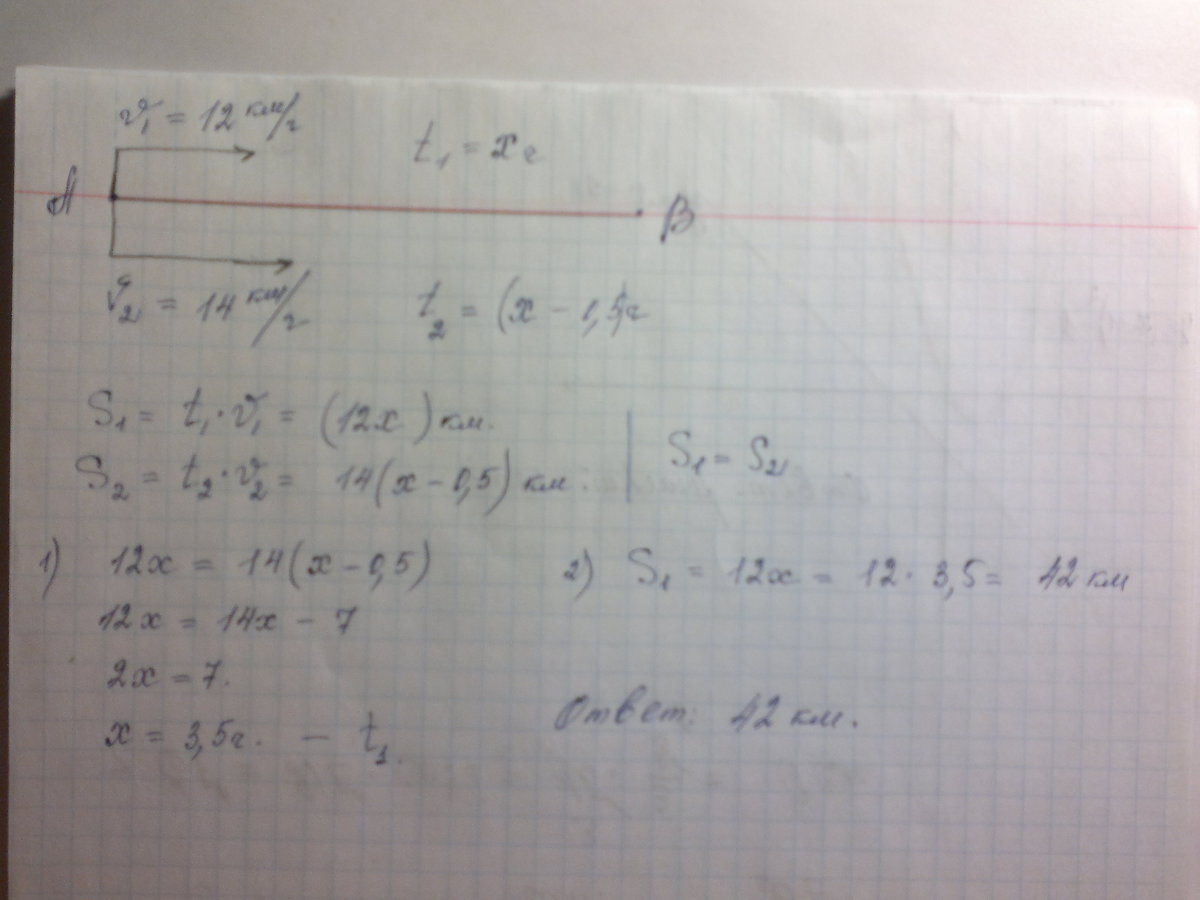 v₁ = 12 км/ч
t₁ = x ч
A
B
v₂ = 14 км/ч
t₂ = (x - 0,5)ч
S₁ = t₁·v₁ = (12x) км.
S₂ = t₂·v₂ = 14(x - 0,5) км.
S₁ = S₂
1) 12x = 14(x - 0,5)
12x = 14x - 7
2x = 7.
x = 3,5ч. - t₁.
2) S₁ = 12x = 12·3,5 = 42 км
Ответ: 42 км.